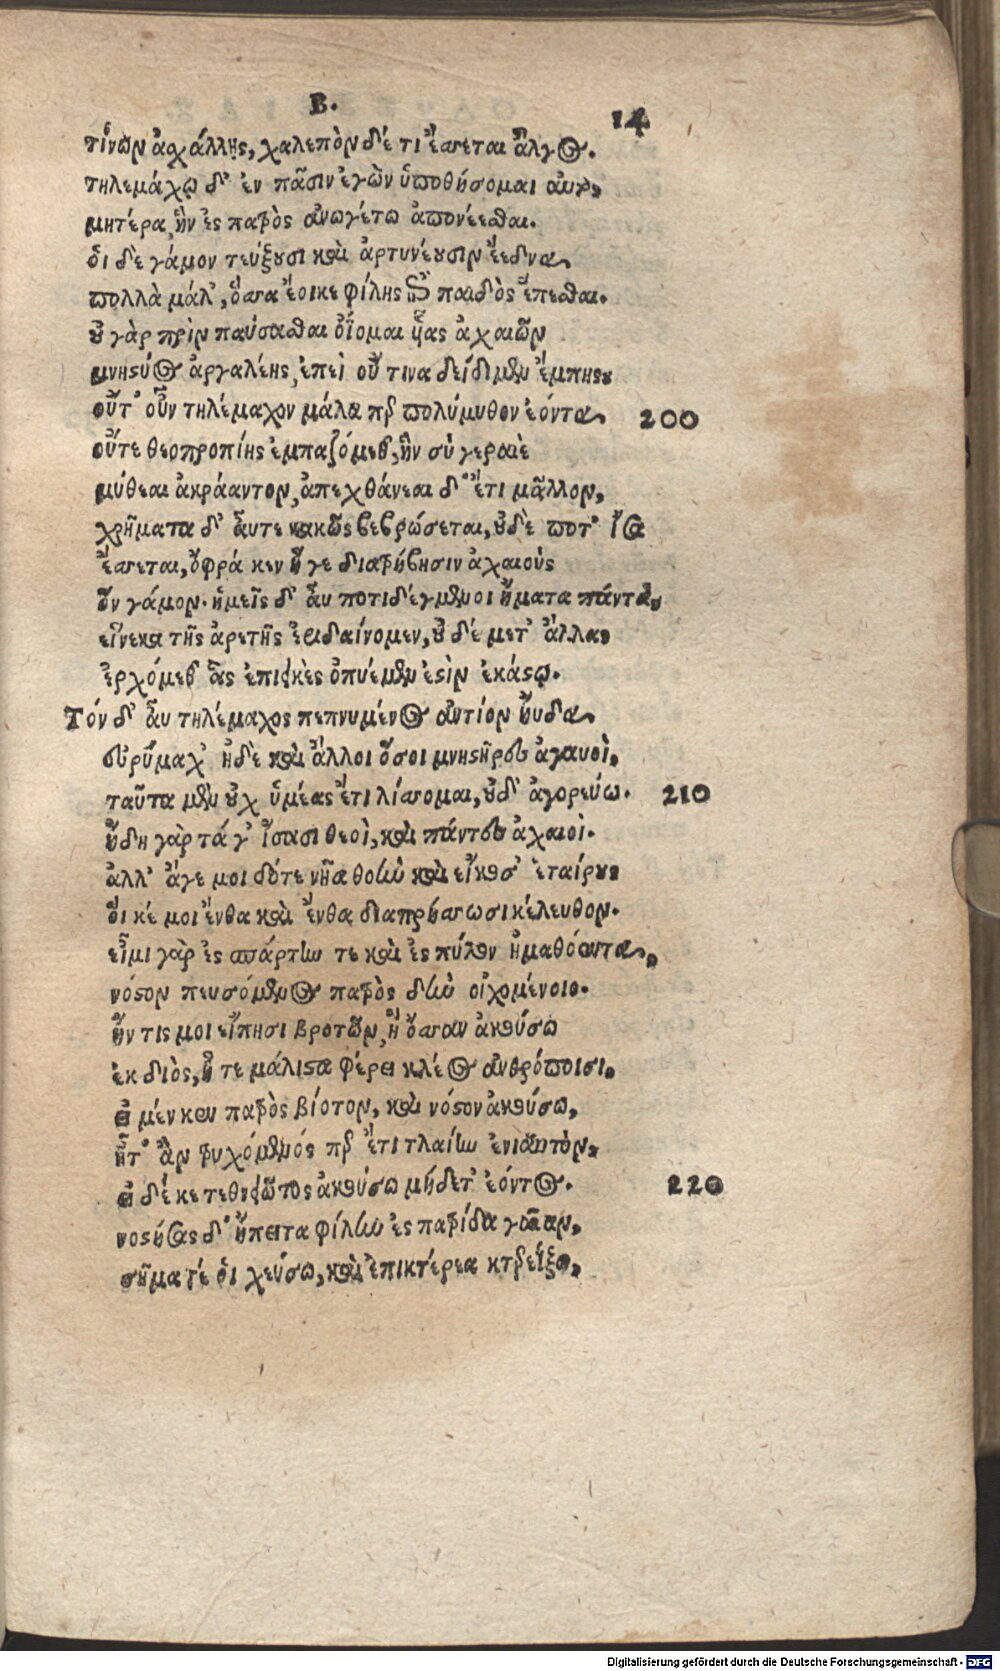 Β.
14
τίνων ἀσχάλλῃς, χαλεπὸν δέ τι ἔσσεται ἄλγος.
τηλεμάχῳ δ' ἐν πᾶσιν ἐγὼν ὑποθήσομαι αὐτός,
μητέρα, ἣν ἐς πατρὸς ἀνωγέτω ἀπονέεσθαι.
ὁι δὲ γάμον τεύξουσι καὶ ἀρτυνέουσιν ἔεδνα,
πολλὰ μάλ', ὅσσα ἔοικε φίλης ἐπὶ παιδὸς ἕπεσθαι.
οὐ γὰρ πρὶν παύσασθαι ὀΐομαι υἷας ἀχαιῶν
μνηστύος ἀργαλέης, ἐπεὶ οὔ τινα δείδιμεν ἔμπης,
οὔτ' οὖν τηλέμαχον μάλα περ πολύμυθον ἐόντα,
200
οὔτε θεοπροπίης ἐμπαζόμεθ', ἣν σὺ γεραιὲ
μύθεαι ἀκράαντον, ἀπεχθάνεαι δ' ἔτι μᾶλλον,
χρήματα δ' αὖτε κακῶς βεβρώσεται, οὐδέ ποτ' ἶσα
ἔσσεται, ὄφρά κεν ἥ γε διατρίβησιν ἀχαιοὺς
ὃν γάμον. ἡμεῖς δ' αὖ ποτιδέγμενοι ἤματα πάντα,
εἵνεκα τῆς ἀρετῆς ἐριδαίνομεν, οὐδέ μετ' ἄλλας
ἐρχόμεθ' ἃς ἐπιεικὲς ὀπυέμεν ἐστὶν ἑκάστῳ.
Τόν δ' αὖ τηλέμαχος πεπνυμένος ἀντίον ηὔδα,
εὐρύμαχ' ἠδὲ καὶ ἄλλοι ὅσοι μνηστῆρες ἀγαυοὶ,
ταῦτα μὲν οὐχ ὑμέας ἔτι λίσσομαι, οὐδ' ἀγορεύω.
210
ἤδη γὰρ τά γ' ἴσασι θεοὶ, καὶ πάντες ἀχαιοὶ.
ἀλλ' ἄγε μοι δότε νῆα θοὴν καὶ εἴκοσ' ἑταίρους
ὅι κέ μοι ἔνθα καὶ ἔνθα διαπρήσσωσι κέλευθον.
εἶμι γὰρ ἐς σπάρτην τε καὶ ἐς πύλον ἠμαθόεντα,
νόστον πευσόμενος πατρὸς δὴν οἰχομένοιο.
ἤν τις μοι εἴπησι βροτῶν, ἢ ὄσσαν ἀκούσω
ἐκ διὸς, ἥ τε μάλιστα φέρει κλέος ἀνθρώποισι,
εἰ μέν κεν πατρὸς βίοτον, καὶ νόστον ἀκούσω,
ἦτ' ἂν τρυχόμενός περ ἔτι τλαίην ἐνιαυτὸν,
εἰ δέ κε τεθνειῶτος ἀκούσω μήδετ' ἐόντος.
220
νοστήσας δ' ἤπειτα φίλην ἐς πατρίδα γαῖαν,
σῆμα τέ ὁι χεύσω, καὶ ἐπικτέρεα κτερεΐξω,
Digitalisierung gefördert durch die Deutsche Forschungsgemeinschaft - DFG